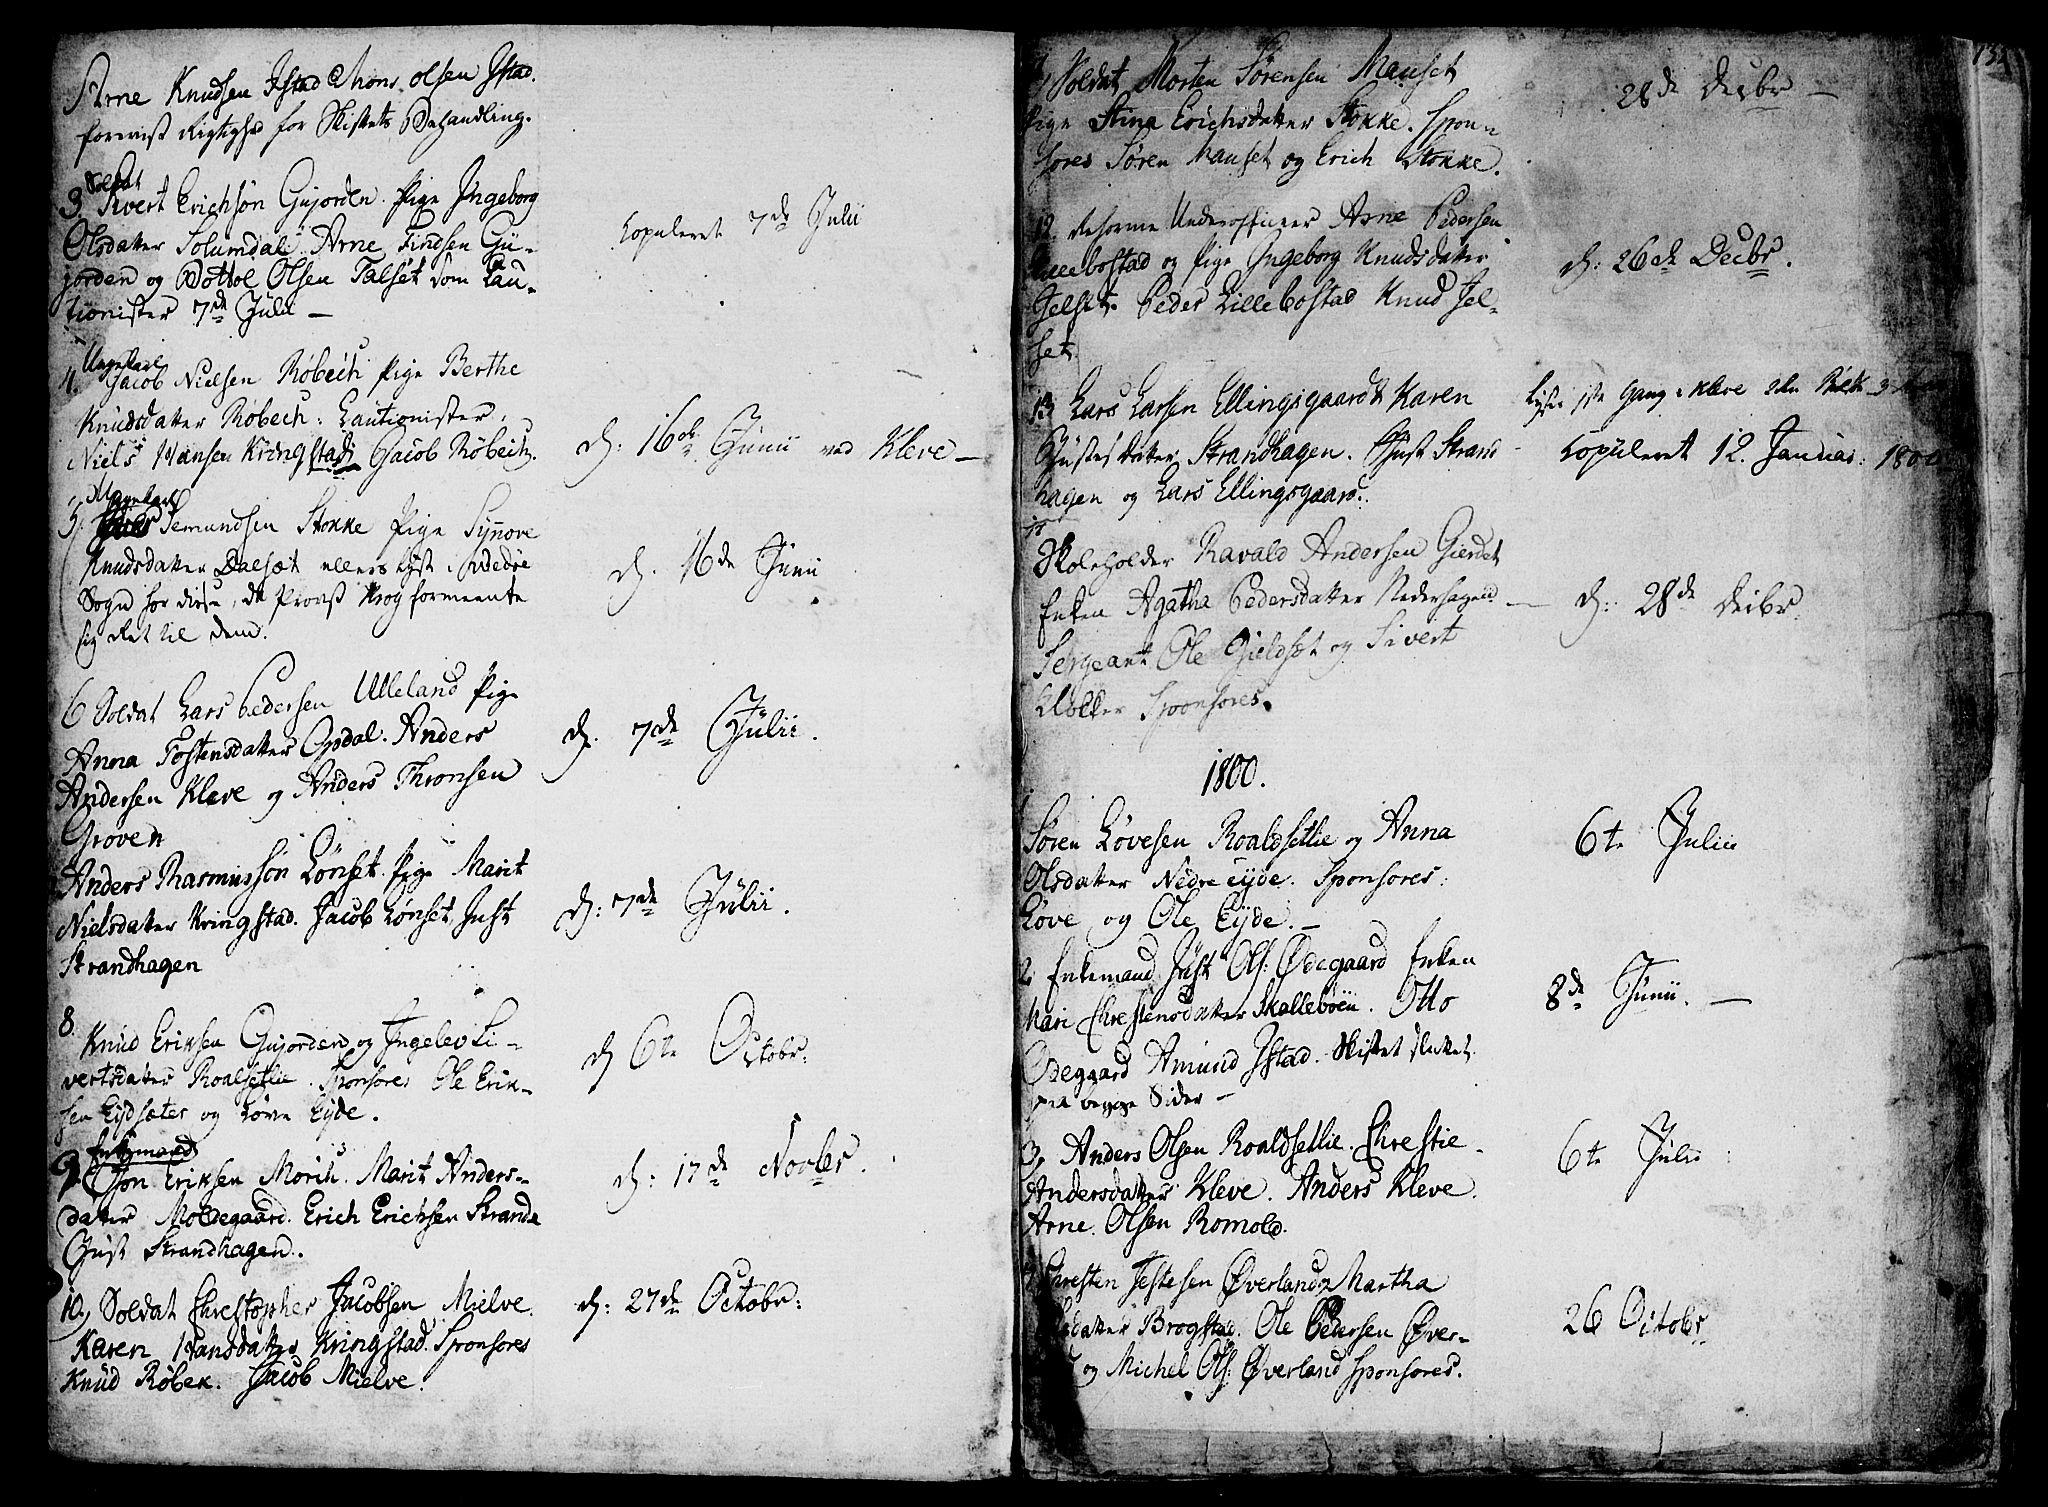 Arne Knudsen Istad Mons olsen Istad.
foreviist Rigtighed for Skiftets Behandling.
Soldat
3. Sivert Erichsøn Gujorden. Pige Ingeborg
Olsdatter Solumdal. Arne Findsen Gu-
jorden og Bottol Olsen Talset som Cau-
tionister 7de Julii —
copuleret 7de Julii
Ungekarl
4. Jacob Nielsen Røbech Pige Berthe
Knudsdatter Røbech: Cautionister,
Niels Hansen Kringstad, Jacob Røbech.
d: 16de Junii ved Kleve —
Ungekarl
5. Semundsen Stokke Pige Synnove
Knudsdatter Dalsæt ellers lyst i
Sogn for disse, da Provst Krog formeente
sig Ret til dem.
d. 16de Junii
6 Soldat Lars Pedersen Ulleland Pige
Anna Tostensdatter Opdal. Anders
Andersen Kleve og Anders Thronsen
Groven
d. 7de Julii.
Anders Rasmussøn Lønset. Pige Marit
Nielsdatter Kringstad. Jacob Lønset, Just
Strandhagen
d: 7de Julii.
8.
Knud Eriksen Gujorden og Ingelev Si-
vertsdatter Roalsetlie. Sponsores Ole Erik-
sen Eydsæter og Løve Eyde.
d 6te Octobr:
Enkemand
9. Jon Eriksen Morch. Marit Anders-
datter Moldegaard. Erich Erichsen Strande
Just Strandhagen.
d: 17de Novbr.
10. Soldat Christopher Jacobsen Mielve.
Karen Hansdatter Kringstad. Sponsores
Knud Røbek. Jacob Mielve.
d: 27de Octobr:
132
Soldat Morten Sørensen Mauset
Pige Stina Erichsdatter Stokke. Spon-
sores Søren Mauset og Erich Stokke.
28de Decbr —
12. Underofficeer Arne Pedersen
Lillebostad og Pige Ingeborg Knudsdatter
Jelset. Peder Lillebostad Knud Jel-
set
d: 26de Decbr.
13. Lars Larsen Ellingsgaard & Karen
Justesdatter Strandhagen. Just Strand
hagen og Lars Ellingsgaard.
lyst 1ste Gang i Kleve
Copuleret 12. Januar: 1800
Skoleholder Ravald Andersen Gierdet
Enken Agatha Pedersdatter Nederhagen
Sergeant Ole Gieldset og Sivert
Klokker Sponsores.
d: 28de Decbr.
1800.
Søren Løvesen Roaldsetlie og Anna
Olsdatter Nedre Eyde. Sponsores:
Løve og Ole Eyde. —
6te Julii
2. Enkemand Just Ols: Ødegaard Enken
Mari Christensdatter Skallebøen. Otto
Ødegaard Amund Istad. Skiftet sluttet
paa begge Sider —
8de Junii. —
3. Anders Olsen Roaldsetlie. Chrestie
Andersdatter Kleve. Anders Kleve.
Arne Olsen Romold.
6te Julii
Chresten Jestesen Øverland & Martha
datter Brogstad. Ole Pedersen Øver-
og Michel Ols: Øverland Sponsores.
26 Octobr